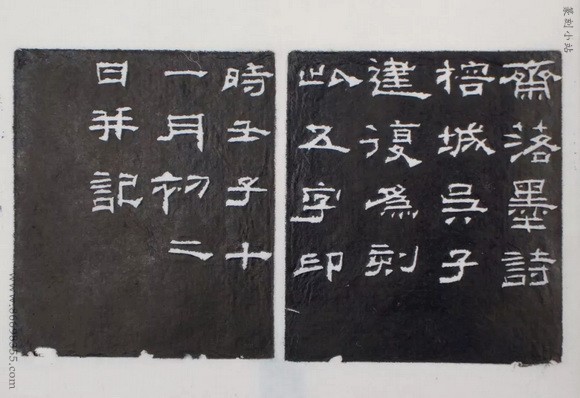 齋落墨詩
榕城吳子
建復爲刻
此五字印
時壬子十
一月初二
日并記
篆刻小站